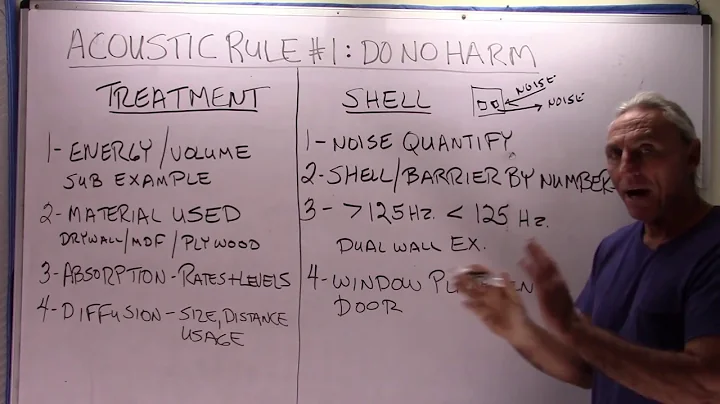 ACOUSTIC RULE #1: DO NO HARM
TREATMENT
1- ENERGY/VOLUME
SUB EXAMPLE
2- MATERIAL USED
DRYWALL/MDF/PLYWOOD
3- ABSORPTION - RATES+LEVELS
4- DIFFUSION - SIZE, DISTANCE
USAGE
SHELL
NOISE
NOISE
1- NOISE QUANTIFY
2- SHELL/BARRIER BY NUMBER
3- >125 HZ. < 125 HZ.
DUAL WALL EX.
4- WINDOW
DOOR